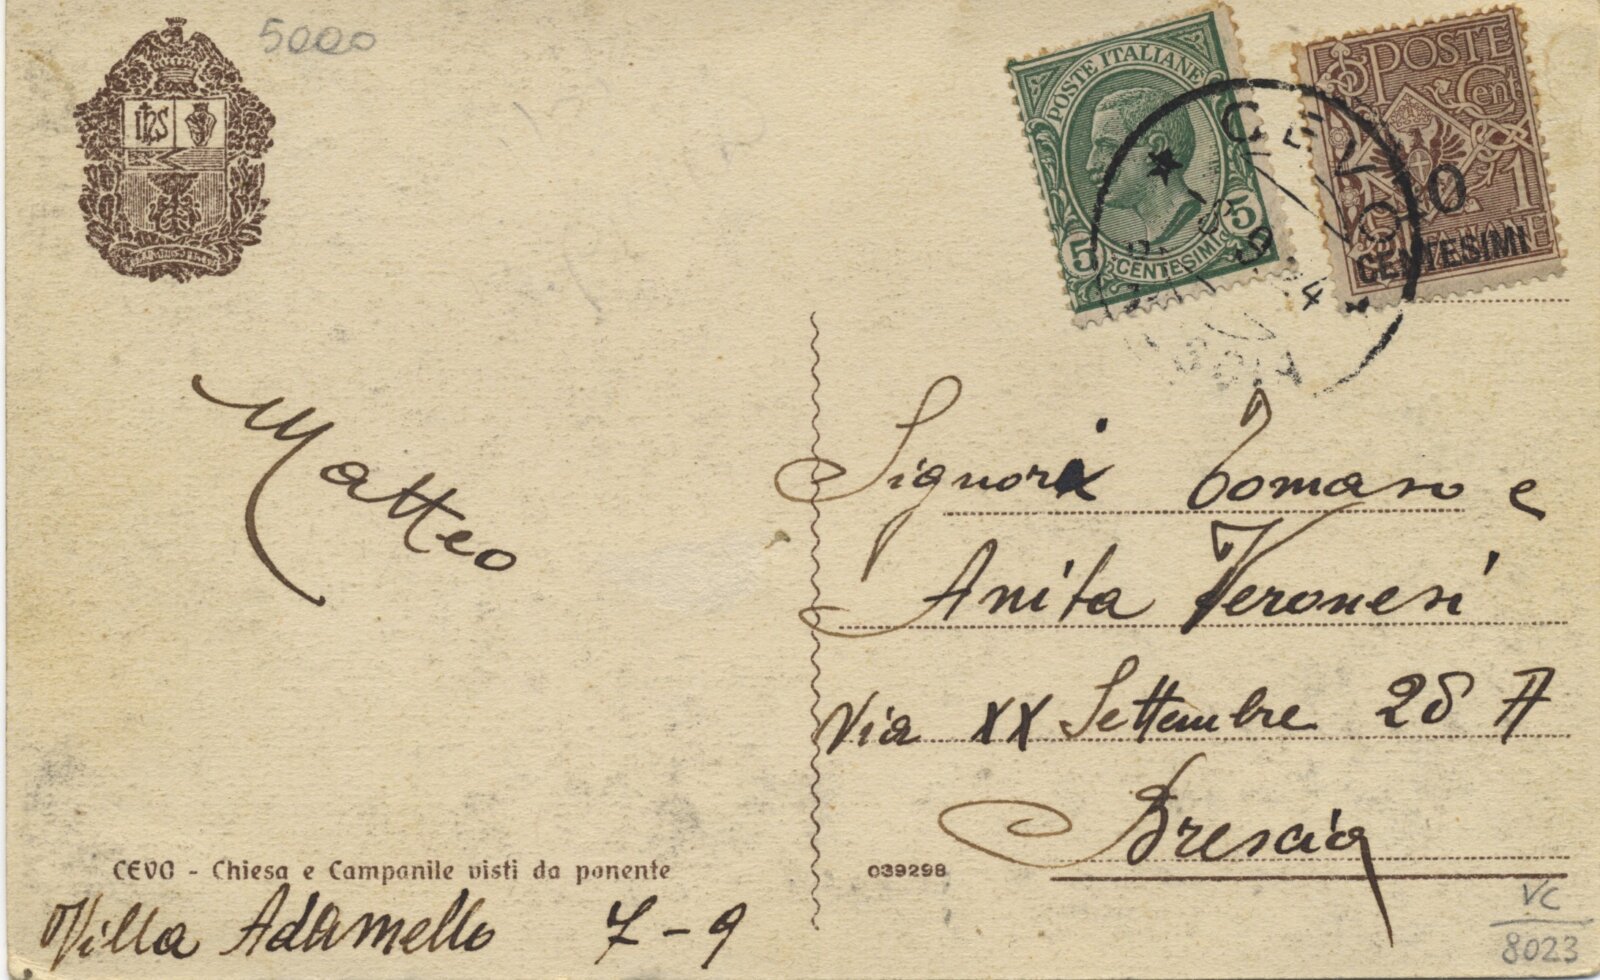 5000
IHS
POSTE ITALIANE
5 5
CENTESIMI
POSTE
Cent 1
10
CENTESIMI
CEVO
Matteo
Signori Tomaso e
Anita Veronesi
Via XX Settembre 28 A
Brescia
CEVO - Chiesa e Campanile visti da ponente
039298
Villa Adamello 7-9
VC
8023